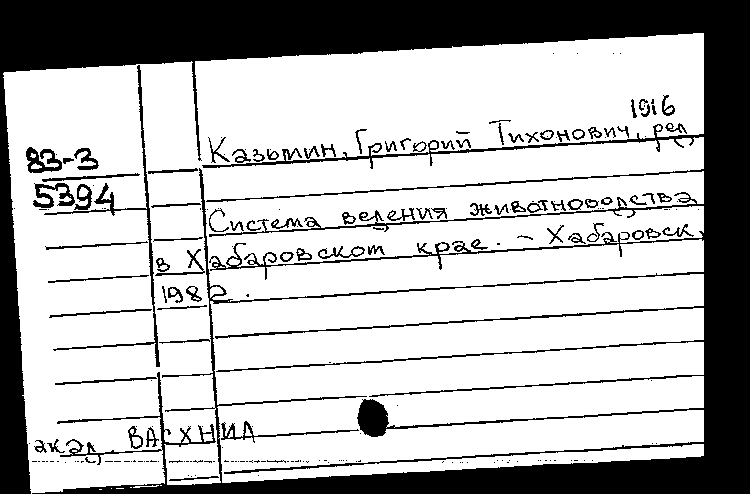 1916
83-3
5394
Казьмин, Григорий Тихонович, ред
Система ведения животноводства
в Хабаровском крае. - Хабаровск,
1982.
акад. ВАСХНИЛ